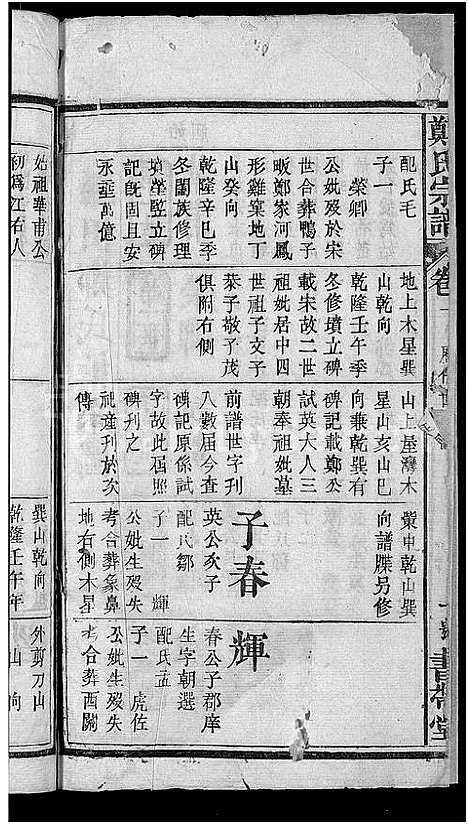 鄭氏宗譜
卷
書帶堂
配氏毛
子一
榮卿
公妣歿於宋
世合葬鴨子
畈鄭家河鳳
形雞窠地丁
山癸向
乾隆辛巳季
冬闔族修理
墳塋監立碑
記旣固且安
永垂萬億
地上木星巽
山乾向
乾隆壬午季
冬修墳立碑
載宋故二世
祖妣居中四
世祖子文子
恭子敬子茂
俱附右側
山上屋灣木
星山亥山巳
向兼乾巽有
碑記載鄭公
試英大人三
朝奉祖妣墓
前譜世字刊
八數屆今查
碑記原係試
字故此屆照
碑刊之
祖產刊於次
傳
窠中乾山巽
向譜牒另修
子春
英公亥子
配氏鄒
子一 輝
公妣生歿失
考合葬象鼻
地右側木星
輝
春公子郡庠
生字朝選
配氏孟
子一 虎佐
公妣生歿失
考合葬西關
始祖華甫公
初爲江右人
巽山乾向
乾隆壬午年
外剪刀山
山向